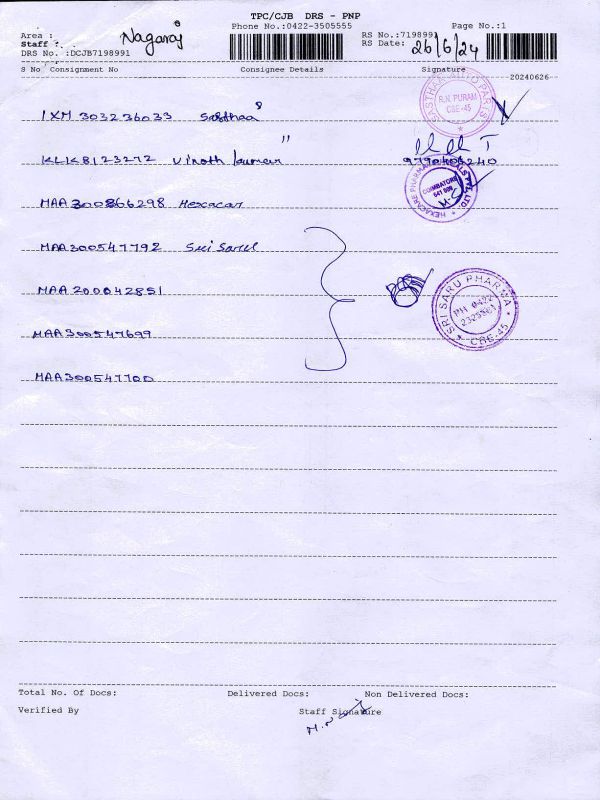 TPC/CJB DRS - PNP
Phone No.:0422-3505555
Page No.:1
Area :
Nagaraj
RS No.:7198991
Staff :
RS Date: 26/6/24
DRS No. :DCJB7198991
S No Consignment No Consignee Details Signature
20240626
IXM 303236033
R.N. PURAM
CBE-45
KLK8123272 Vinoth kumar
9790406240
MAA300866298 Hexacar
COIMBATORE
MAA300547792 Sri Saru
MAA200042851
SRI SARU PHARMA
PH 0422
CBE-45
MAA300547699
MAA300547700
Total No. Of Docs: Delivered Docs: Non Delivered Docs:
Verified By Staff Signature